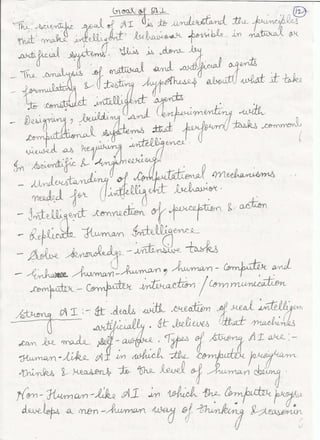 Goal of AI
(12)
The scientific goal of AI is to understand the principles
that make intelligent behaviour possible in natural or
artificial systems. This is done by
- The analysis of natural and artificial agents
- formulating & testing hypotheses about what it take
to construct intelligent agents
- Designing, building and experimenting with
computational systems that perform tasks commonly
viewed as requiring intelligence
In scientific & engineering
- Understanding of computational mechanisms
needed for intelligent behavior.
- Intelligent connection of perception & action
- Replicate Human Intelligence
- Solve knowledge-intensive tasks
- Enhance human-human, human-computer and
computer-computer interaction / communication
Strong AI :- It deals with creation of real intelligen
artificially. It believes that machines
can be made self-aware. Types of strong AI are:-
Human-like AI in which the computer program
thinks & reasons to the level of human being.
Non-Human-like AI in which the computer progra
develops a non-human way of thinking & reasonin